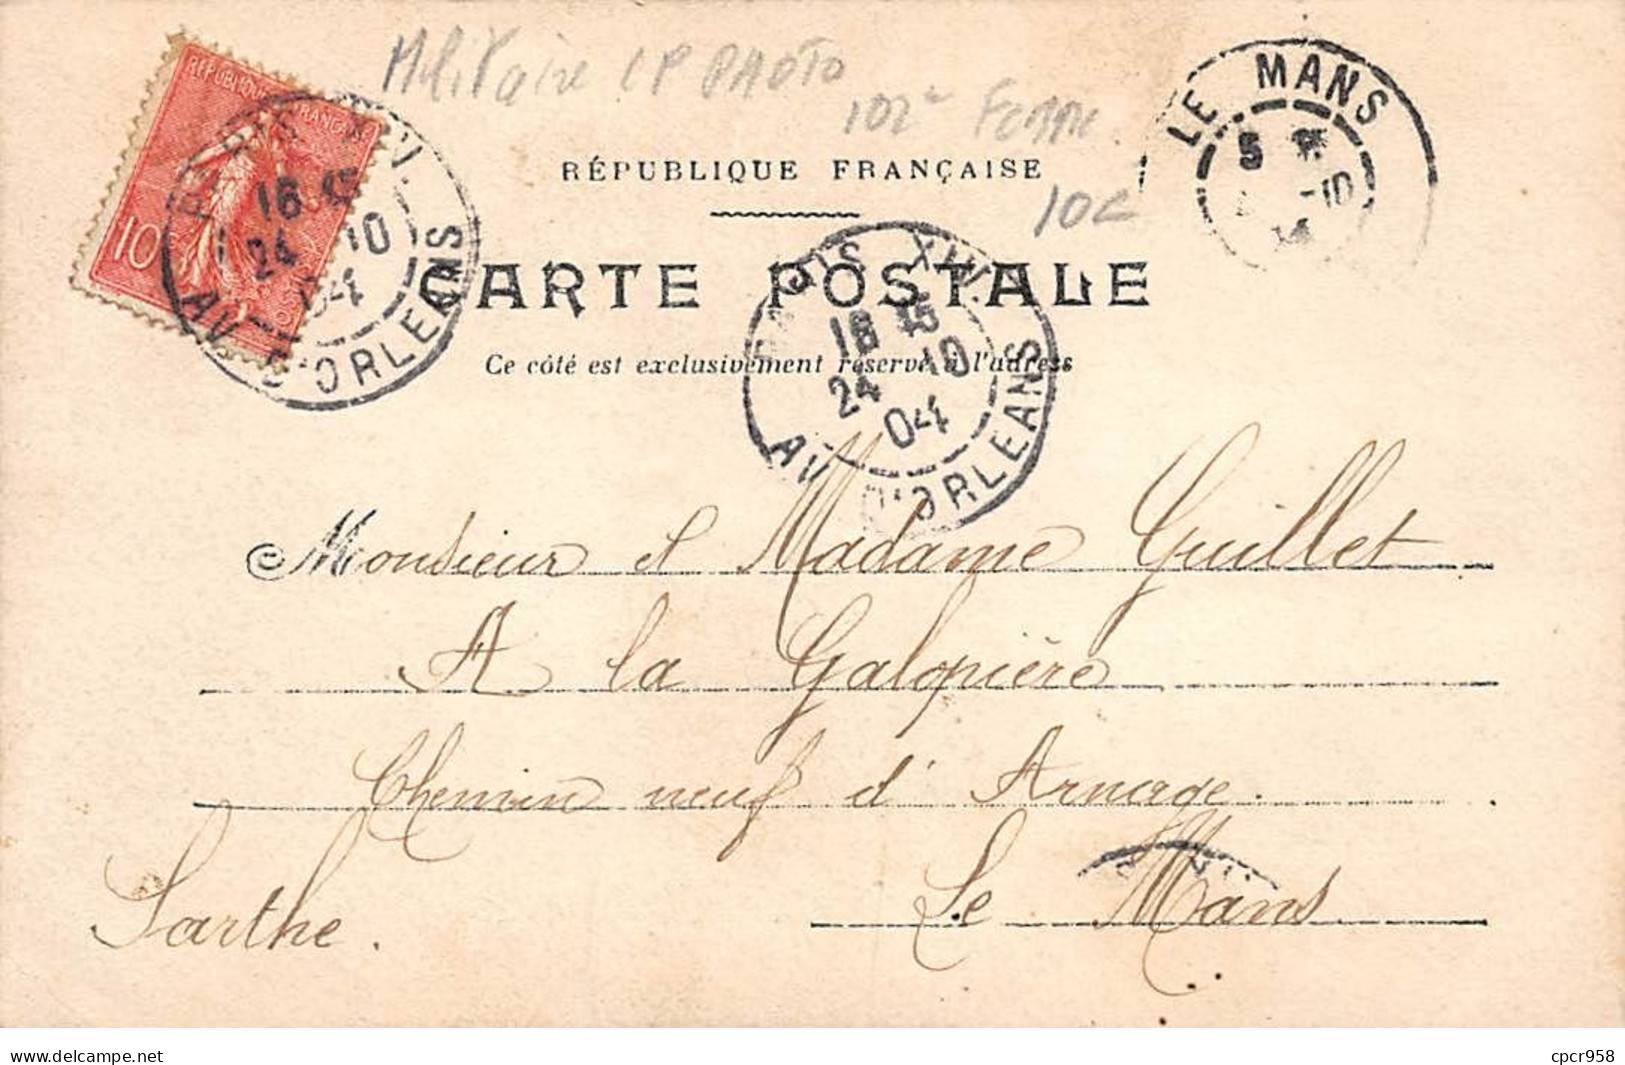 Militaire CP PHOTO
102e
10c
RÉPUBLIQUE FRANÇAISE
CARTE POSTALE
Ce côté est exclusivement réservé à l'adresse
RÉPUBLIQUE FRANÇAISE
10
PARIS XIV.
16 45
24 10
04
AV. D'ORLEANS
PARIS XIV.
16 45
24 10
04
AV. D'ORLEANS
LE MANS
5
-10
Monsieur et Madame Guillet
A la Galopière
Chemin neuf d'Arnage.
Le Mans
Sarthe.
delcampe.net
cpcr958